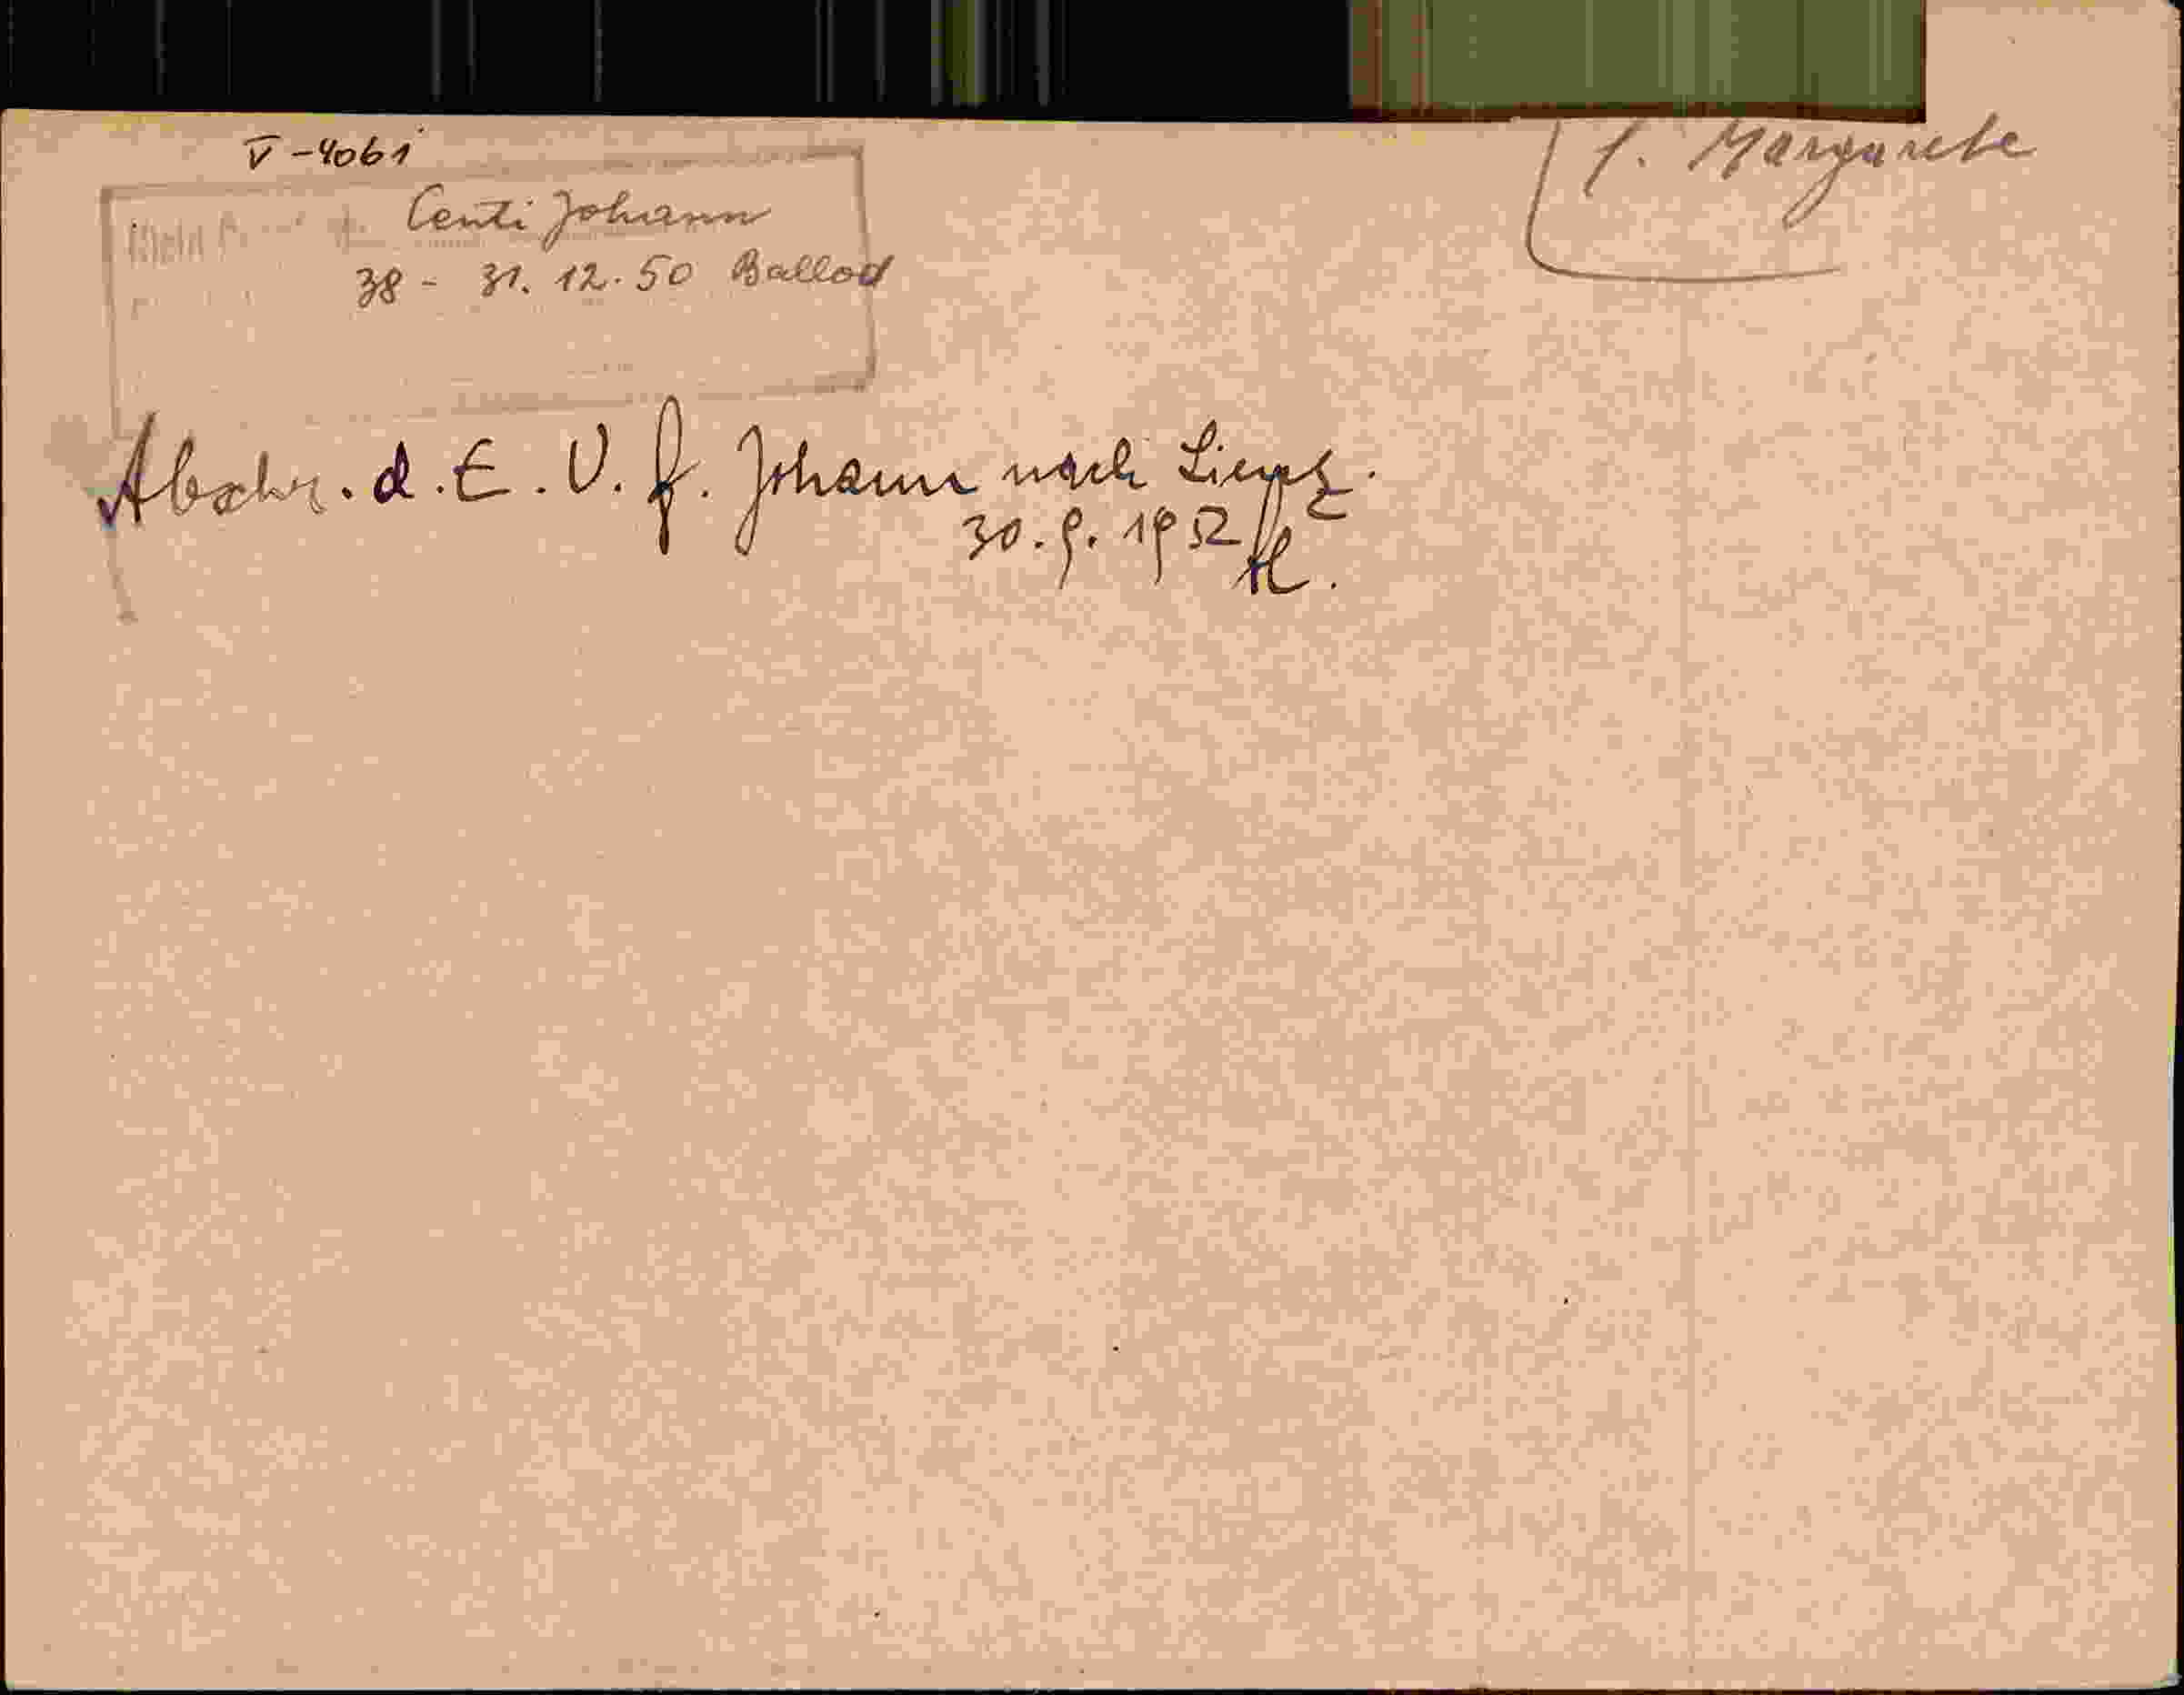 V-4061
f. Margarete
Centi Johann
38 - 31. 12. 50 Ballod
Abschr. d. E. V. f. Johann nach Lienz.
30. 9. 1952